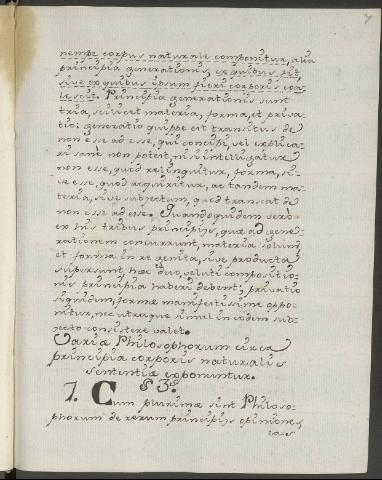 7
nempe corpus naturale componitur, alia
principia generationis, ex quibus fit,
sive ex quibus ipsum fieri corporis coa-
lescit. Principia generationis sunt
tria, scilicet materia, forma, et priva-
tio: generatio quippe est transitus de
non esse ad esse, qui concipi, vel explica-
ri sane non potest, nisi intelligatur
non esse, quod relinquitur, forma, si-
ve esse, quod requiritur, ac tandem ma-
teria, sive subjectum, quod transeat de
non esse ad esse. Quandoquidem vero
ex his tribus principijs, quæ ad gene-
rationem concurrunt, materia solum,
et forma in re genita, sive producta
supersunt hæc duo, veluti compositio-
nis principia haberi debent; privatio
siquidem, formæ manifestissime oppo-
nitur, nec utraque simul in eodem sub-
jecto consistere valet.
Variæ Philosophorum circa
principia corporis naturalis
sententiæ exponuntur.
§ 3.
1. Cum plurimæ sint Philoso-
phorum de rerum principijs opiniones,